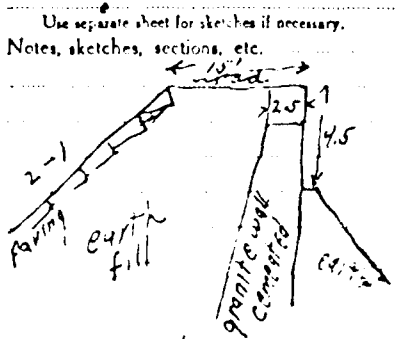 Use separate sheet for sketches if necessary.
Notes, sketches, sections, etc.
15'
road
2.5
4.5
2-1
paving
earth
fill
granite wall
cemented
earth